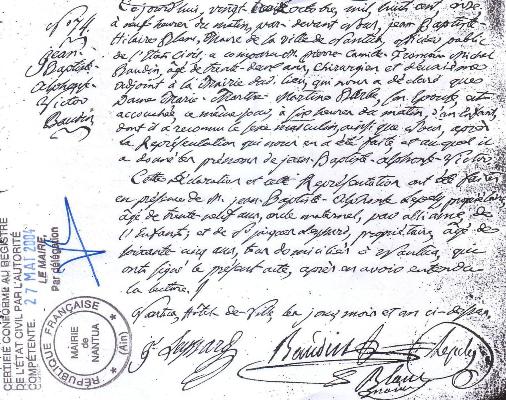 N° 74
Jean
Baptiste
Alphonse
Victor
Baudin
Cejourd'hui, vingt trois octobre, mil huit cent onze
à neuf heures du matin, par devant Nous, Jean Baptiste
Hilaire Blanc, Maire de la Ville de Nantua, officier public
de l'Etat Civil, a comparu Mr pierre Camille François Michel
Baudin, âgé de trente sept ans, Chirurgien et deuxième
adjoint à la Mairie dud. lieu, qui nous a déclaré que
Dame Marie Martine son Epouse, est
accouchée, ce même jour, à six heures du matin, d'un Enfant,
dont il a reconnu le sexe masculin, ainsi que Nous, après
la Représentation qui nous en a été faite et auquel il
a donné les prénoms de jean-Baptiste-alphonse-Victor
Cette Déclaration et cette Représentation ont été faites
en présence de M. jean-Baptiste propriétaire,
âgé de trente ans, oncle maternel, par alliance, de
l'Enfant, et de Sr jacques propriétaire, âgé de
soixante cinq ans, tous domiciliés à Nantua, qui
ont signé le présent acte, après en avoir entendu
la lecture.
Nantua, hôtel de Ville, les jour, mois et an ci-dessus,
Baudin
Blanc
maire
CERTIFIÉ CONFORME AU REGISTRE
DE L'ÉTAT CIVIL PAR L'AUTORITÉ
COMPÉTENTE.
27 MAI 2004
LE MAIRE
Par délégation
RÉPUBLIQUE FRANÇAISE
MAIRIE
de
NANTUA
(Ain)